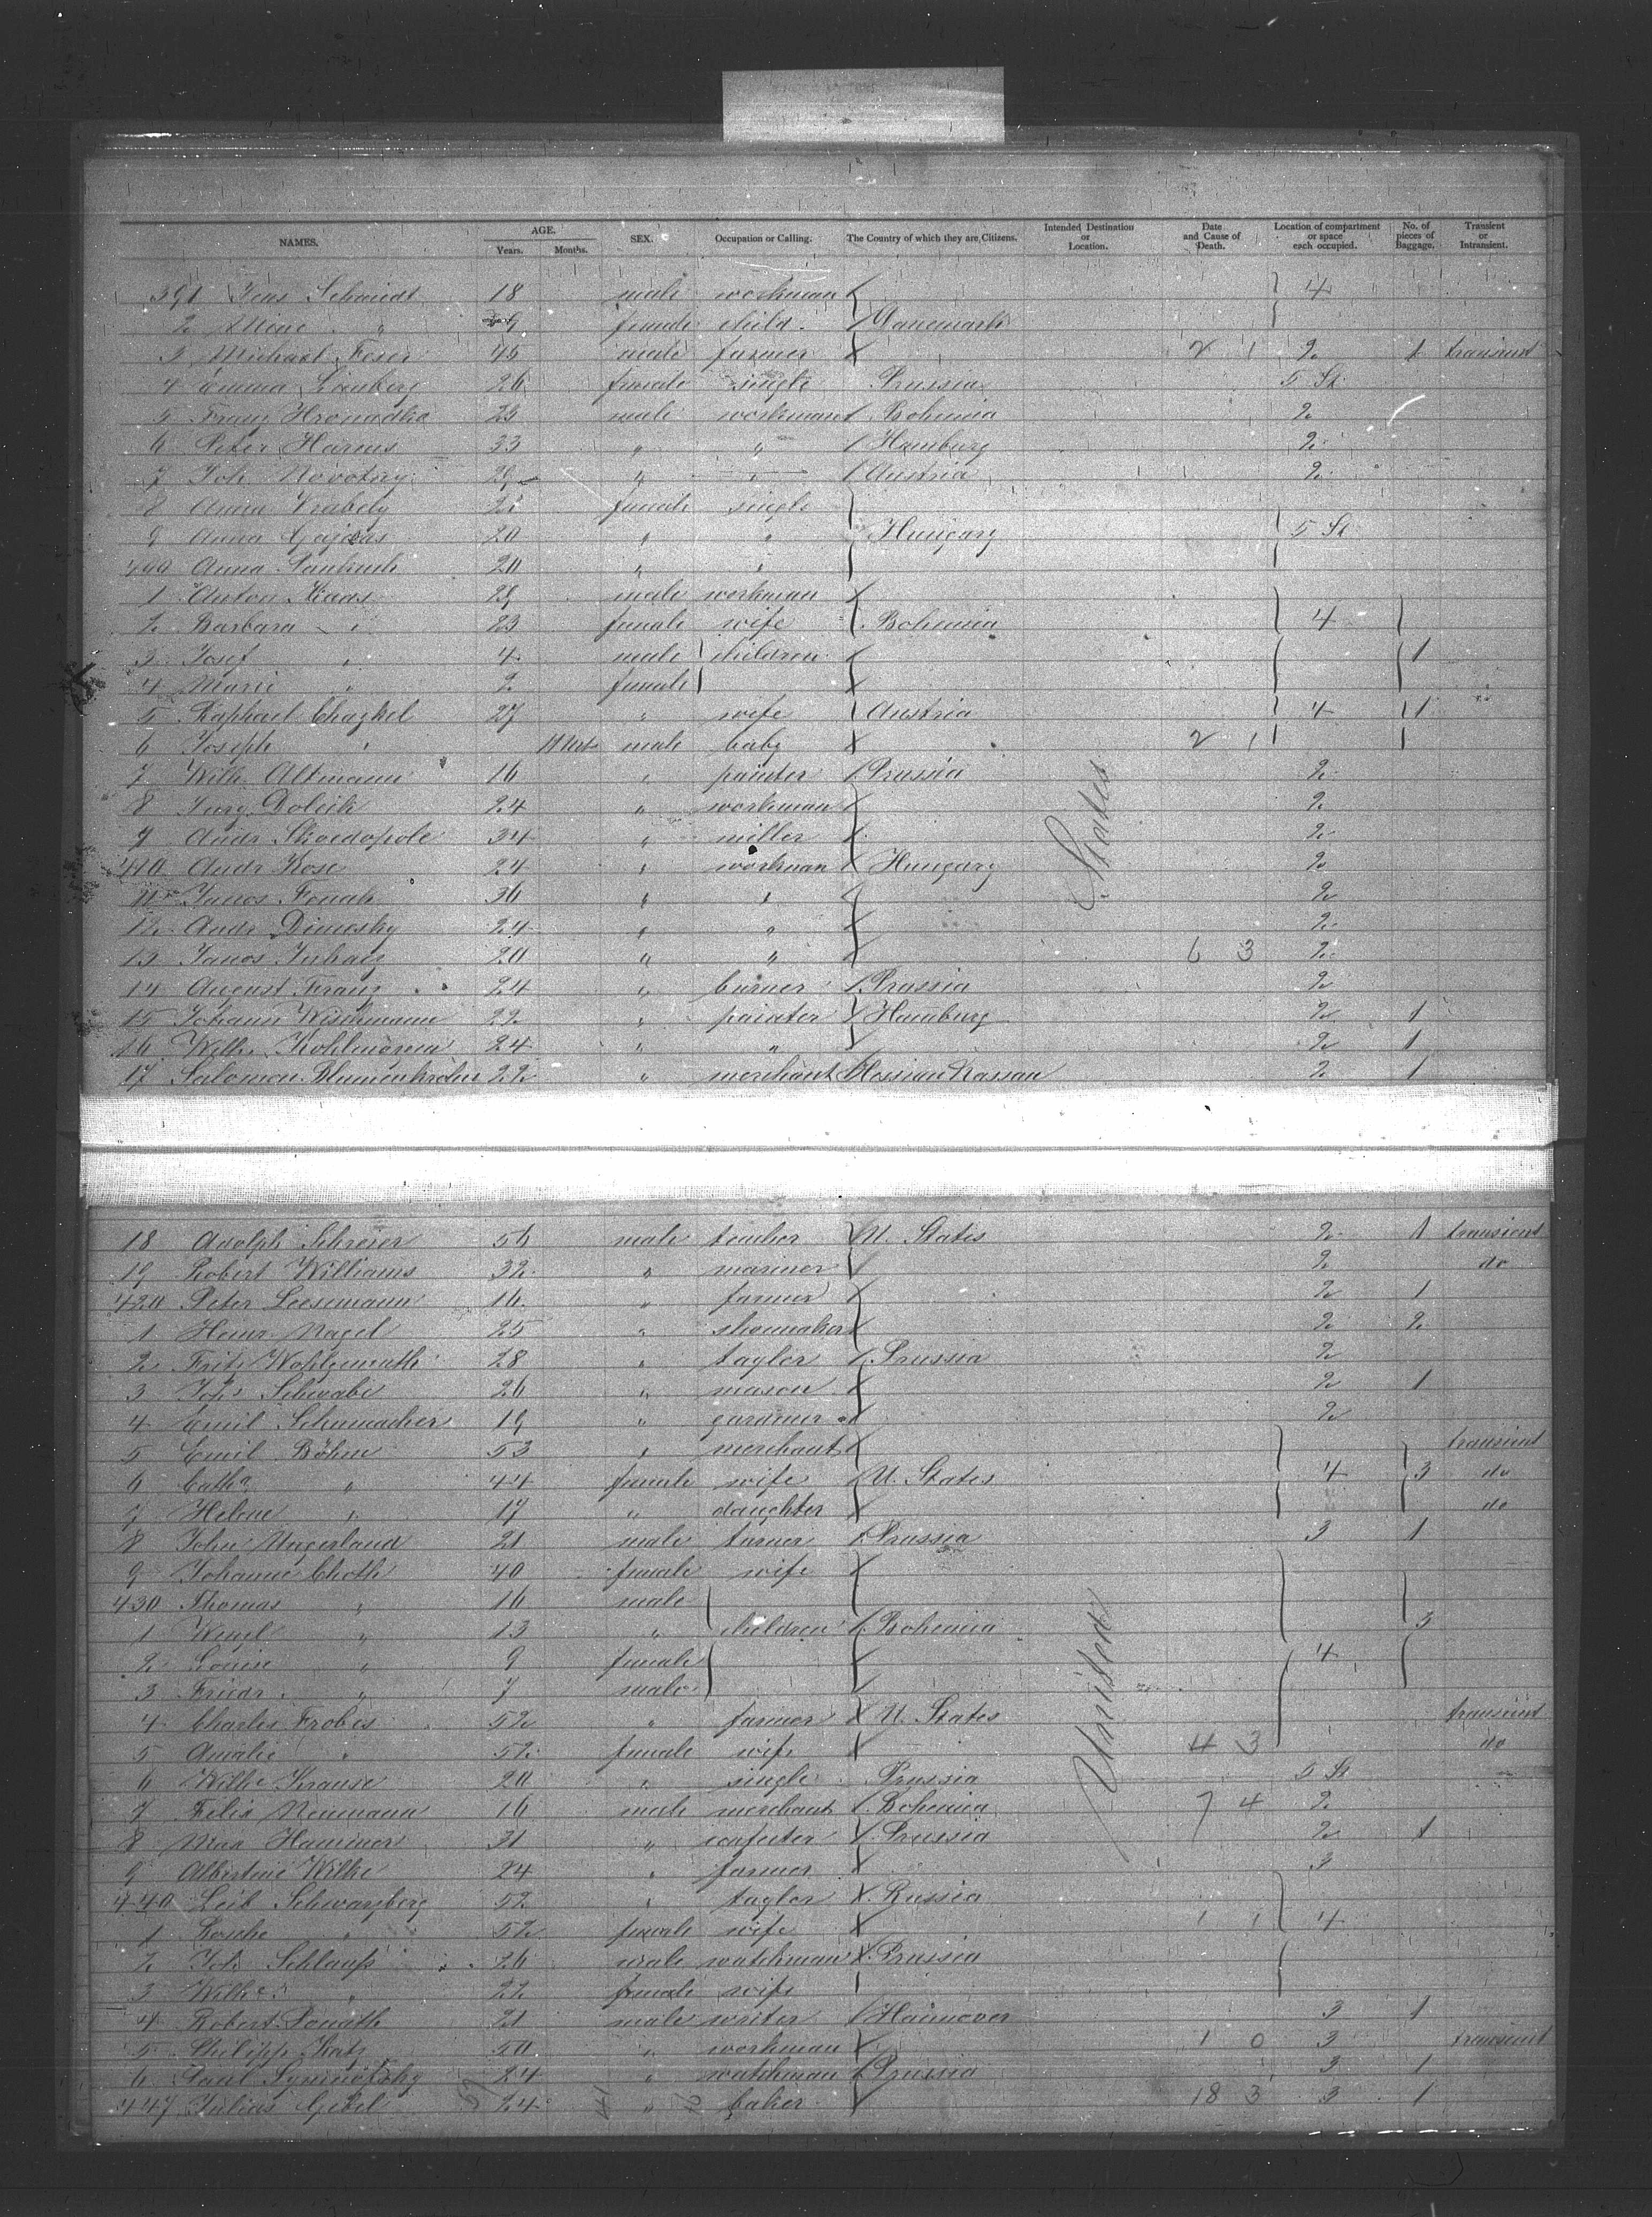 NAMES. AGE. Years. Months. SEX. Occupation or Calling. The Country of which they are Citizens. Intended Destination or Location. Date and Cause of Death. Location of compartment or space each occupied. No. of pieces of Baggage. Transient or Intransient.
391 Jens Schmidt 18 male workman 4
2 Mine " 9 female child Danemark
3 Michael Feser 45 male farmer 2 1 2 1 transient
4 Emma 26 female single Prussia 5 St.
5 Franz Hronadka 25 male workman Bohemia 2
6 Peter Harms 33 " " Hamburg 2
7 Joh. Novotny 29 " " Austria 2
8 Anna 22 female single
9 Anna Gajdas 20 " " Hungary 5 St
400 Anna 20 " "
1 Anton 29 male workman
2 Barbara " 23 female wife Bohemia 4
3 Josef " 4 male children 1
4 Marie " 2 female
5 Raphael Chazkel 27 " wife Austria 4 1
6 Joseph " 11 Mt male baby 2 1
7 Wilh. Altmann 16 " painter Prussia 2
8 Jury Doleik 24 " workman 2
9 Andr Skoedopole 34 " miller 2
410 Andr Kose 24 " workman Hungary 2
11 Janos 36 " " 2
12 Andr. Dimesky 24 " " 2
13 Janos Juhasz 20 " " 6 3 2
14 August Franz 24 " burner Prussia 2
15 Johann Wischmann 22 " painter Hamburg 2 1
16 Wilh. Kohlmoren 24 " " 2 1
17 Salomon Blumenkrohn 22 " merchant Hessian Nassau 2 1
States
18 Adolph Schreier 56 male teacher U. States 2 1 transient
19 Robert Williams 32 " mariner 2 do
420 Peter Loesemann 16 " farmer 2 1
1 Heinr. Nagel 25 " shoemaker 2 2
2 Fritz Wohlgemuth 28 " taylor Prussia 2
3 Johs Schwabe 26 " mason 2 1
4 Emil Schumacher 19 " gardener 2
5 Emil Böhm 53 " merchant transient
6 Catha " 44 female wife U. States 4 3 do
7 Helene " 17 " daughter do
8 John Ungerland 21 male turner Prussia 3 1
9 Johanne Choth 40 female wife
430 Thomas " 16 male
1 Wenzl " 13 " children Bohemia 3
2 Louise " 9 female 4
3 Friedr. " 7 male
4 Charles Frobes 52 " farmer U. States transient
5 Amalie " 52 female wife 4 3 do
6 Wilhe Krause 20 " single Prussia 5 St
7 Felix Neumann 16 male merchant Bohemia 7 4 2
8 Max Hammer 31 " confecter Prussia 2 1
9 Albertine Wilke 24 " farmer 3
440 Leib Schwarzberg 52 " taylor Russia
1 " 52 female wife 1 1 4
2 Johs Schlauß 26 male watchman Prussia
3 Wilhe " 22 female wife
4 Robert 21 male writer Hannover 3 1
5 Philipp Katz 50 " workman 1 0 3 transient
6 Paul 24 " watchman Prussia 3 1
447 Julius Gebel 24 " baker 18 3 3 1
United